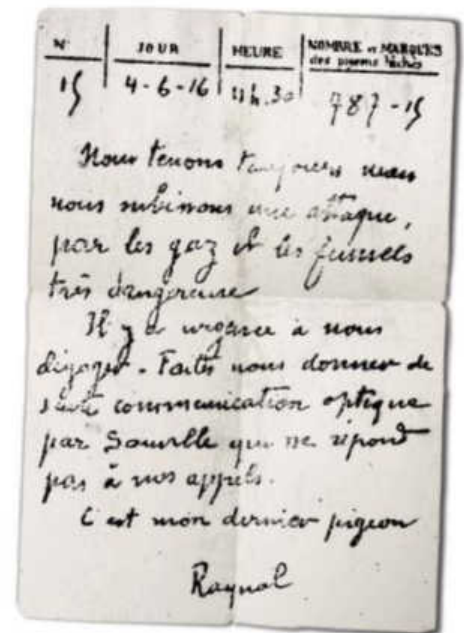 N° JOUR HEURE NOMBRE et MARQUES
des pigeons lâchés
15 4-6-16 11h.30 787-15
Nous tenons toujours mais
nous subissons une attaque,
par les gaz et les fumées
très dangereuse
Il y a urgence à nous
dégager. Faites nous donner de
suite communication optique
par Souville qui ne répond
pas à nos appels.
C'est mon dernier pigeon
Raynal